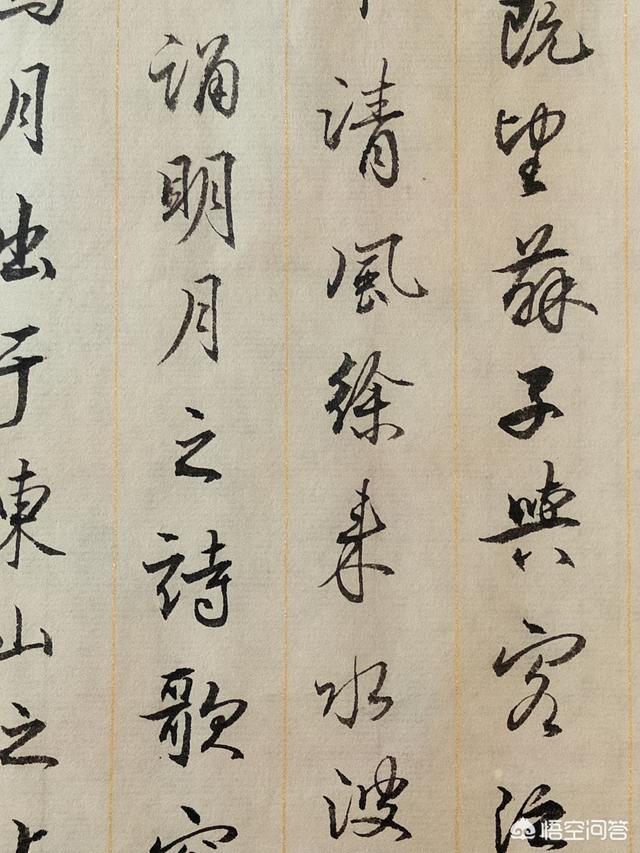 既望蘇子與客泛
清風徐来水波
誦明月之詩歌
月出于東山之
悟空问答